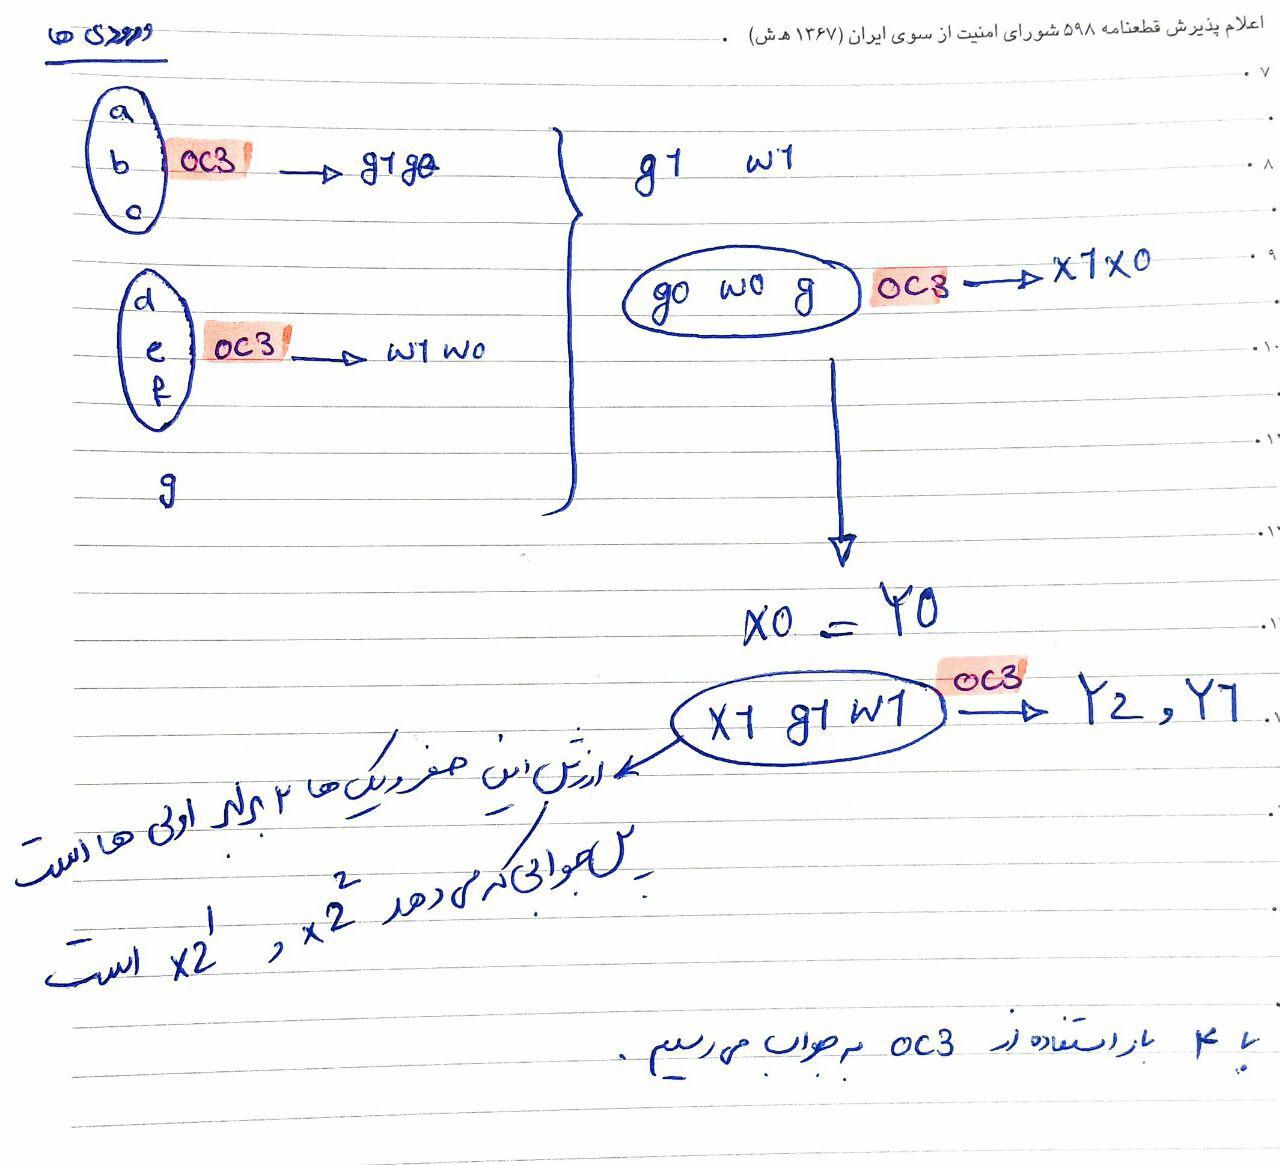 اعلام پذیرش قطعنامه ۵۹۸ شورای امنیت از سوی ایران (۱۳۶۷ ه‍.ش)
ورودی ها
۷
a
b OC3 → g1 g0
c
g1 w1
۸
g0 w0 g OC3 → x1 x0
۹
d
e OC3 → w1 w0
f
۱۰
g
x0 = Y0
x1 g1 w1 OC3 → Y2 , Y1
ارزش این صفر و یک ها ۲ برابر اولی ها است
پس جوابی که می دهد x2² , x2¹ است
با ۴ بار استفاده از OC3 به جواب می رسیم .